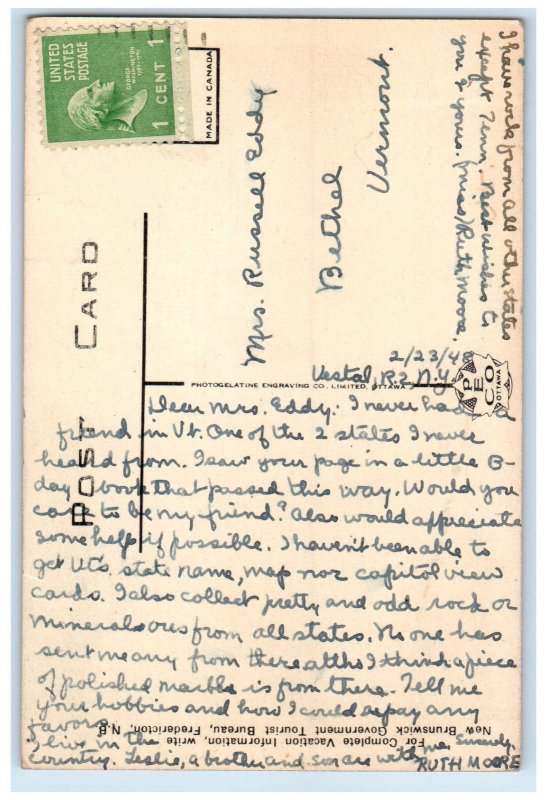 UNITED
STATES
POSTAGE
GEORGE
WASHINGTON
1789-1797
1 CENT 1
MADE IN CANADA
POST CARD
Mrs. Russell Eddy
Bethel
Vermont.
PHOTOGELATINE ENGRAVING CO., LIMITED, OTTAWA.
PECO
OTTAWA
2/23/4
Vestal, R.2, N.Y.
Dear Mrs. Eddy. I never had a
friend in Vt. One of the 2 states I never
heard from. I saw your page in a little B-
day book that passed this way. Would you
care to be my friend? Also would appreciate
some help if possible. I haven't been able to
get Vt's. state name, map nor capitol view
cards. I also collect pretty and odd rock or
minerals ores from all states. No one has
sent me any from there altho I think a piece
of polished marble is from there. Tell me
your hobbies and how I could repay any
favors.
I live in the
country. Leslie, a brother and son are with me. Sincerely,
RUTH MOORE
I have rock from all other states
except Tenn. Best wishes to
you & yours. Miss Ruth Moore.
For Complete Vacation Information, write
New Brunswick Government Tourist Bureau, Fredericton, N.B.